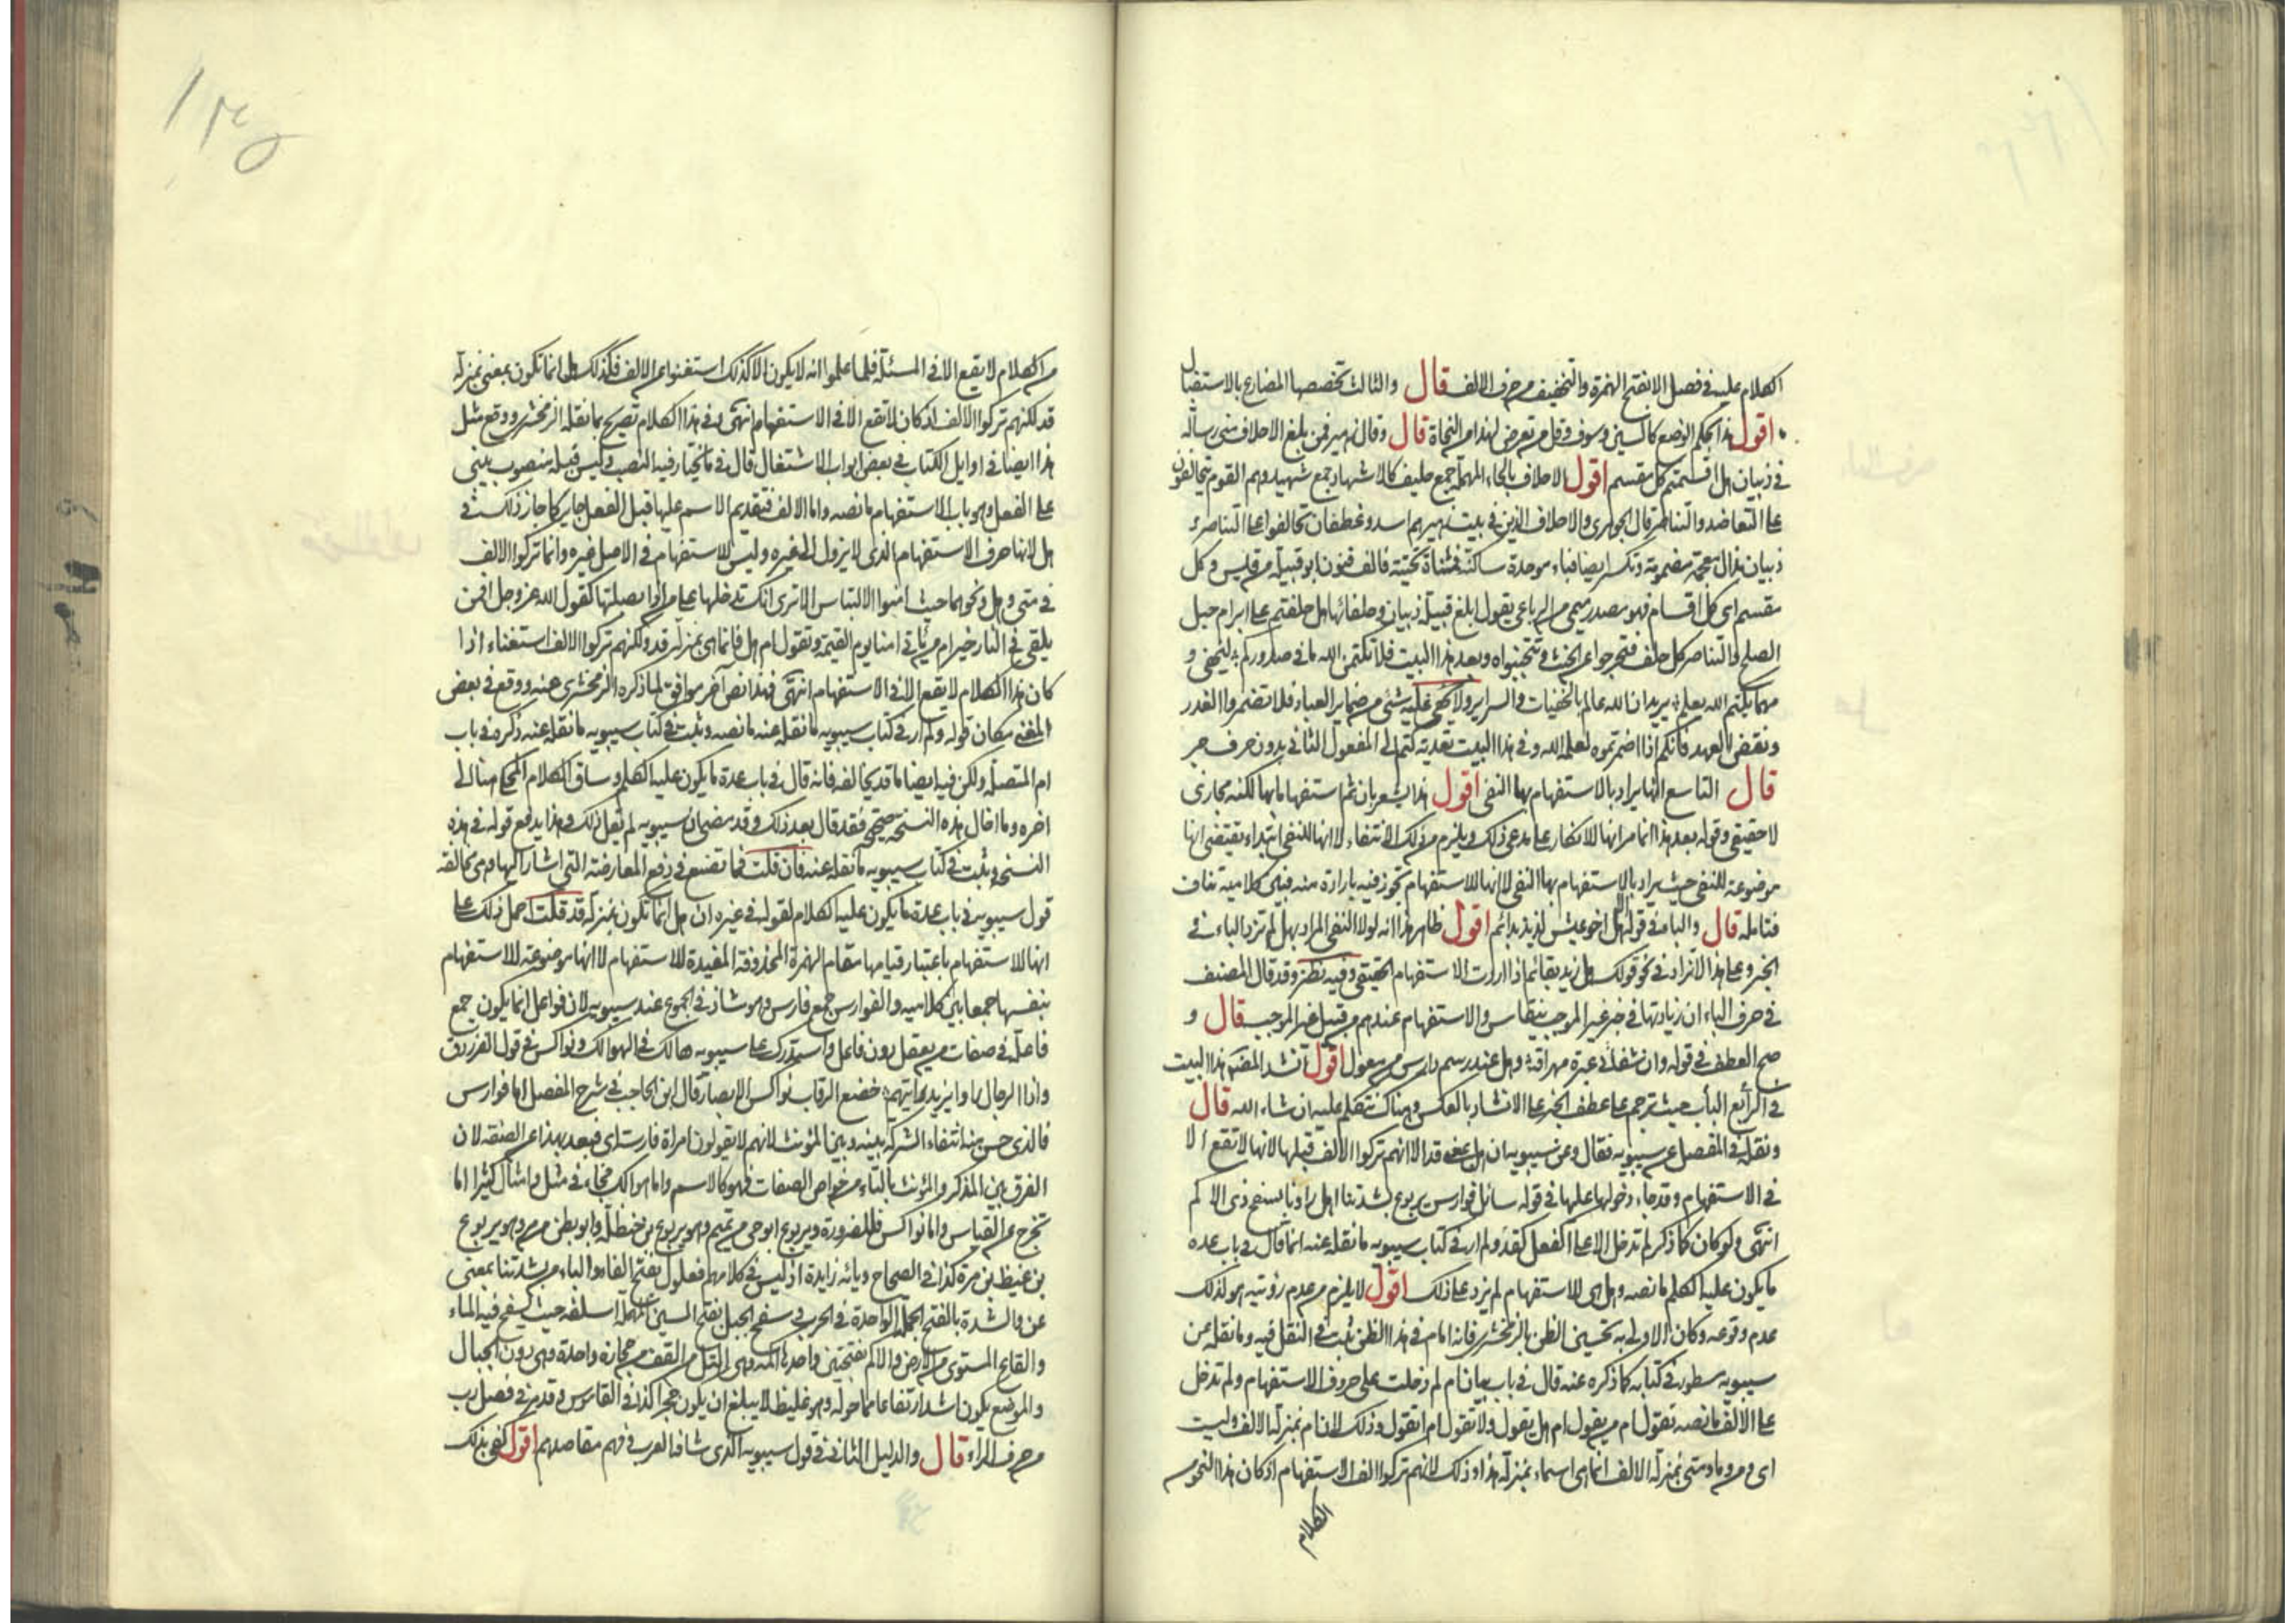 الكلام عليه في فصل الا بفتح الهمزة والتخفيف من حرف الالف قال والثالث تخصيصها المضارع بالاستقبال
اقول هذا بحكم الوضع كالسين وسوف وقل من تعرض لهذا من النحاة قال وقال زهير فمن مبلغ الاحلاف عني رسالة
وذبيان هل اقسمتم كل مقسم اقول الاحلاف بالحاء المهملة جمع حليف كالاشهاد جمع شهيد وهم القوم يتحالفون
على التعاضد والتناصر قال الجوهري والاحلاف الذين في بيت زهير هم اسد وغطفان تحالفوا على التناصر و
ذبيان بذال معجمة مضمومة وتكسر ايضا فباء موحدة ساكنة فمثناة تحتية فالف فنون ابو قبيلة من قيس وكل
مقسم اى كل اقسام فهو مصدر ميمي من الرباعي يقول ابلغ قبيلة ذبيان وحلفائها هل حلفتم على ابرام حبل
الصلح والتناصر كل حلف فتحرجوا عن الحنث وتتجنبواه وبعد هذا البيت فلا تكتمن الله ما في صدوركم ليخفى و
مهما يكتم الله يعلم يريد ان الله عالم بالخفيات والسراير ولا يخفى عليه شئ من ضماير العباد فلا تضمروا الغدر
ونقض العهد فانكم اذا اضمرتموه لعلمه الله وفي هذا البيت تعدية كتم الى المفعول الثاني بدون حرف جر
قال التاسع انها يراد بالاستفهام بها النفى اقول هذا يشعر بان ثم استفهاما بها لكنه مجازى
لا حقيقى وقوله بعد هذا انما مر انها للانكار على مدعى ذلك ويلزم من ذلك الانتفاء لا انها للنفى ابتداء يقتضى انها
موضوعة للنفى حيث يراد بالاستفهام بها النفى لا انها للاستفهام تجوز فيه بارادة منه فبين كلاميه تناف
فتامله قال والباء في قوله الا هل اخو عيش لذيذ بدائم اقول ظاهر هذا انه لولا النفى المراد بهل لم تزد الباء في
الخبر وعلى هذا لا تزاد في نحو قولك هل زيد بقائم اذا اردت الاستفهام الحقيقى وفيه نظر وقد قال المصنف
في حرف الباء ان زيادتها في خبر غير الموجب ينقاس والاستفهام عندهم من قبيل غير الموجب قال و
صح العطف في قوله وان شفائى عبرة مهراقة وهل عند رسم دارس من معول اقول انشد المصنف هذا البيت
في الرابع الباب حيث ترجم على عطف الخبر على الانشاء وبالعكس وهناك نتكلم عليه ان شاء الله قال
ونقله في المفصل عن سيبويه فقال وعن سيبويه ان هل بمعنى قد الا انهم تركوا الالف قبلها لانها لا تقع الا
في الاستفهام وقد جاء دخولها عليها في قوله سائل فوارس يربوع بشدتنا اهل راونا بسفح ذى الاكم
انتهى ولو كان كما ذكر لم تدخل الا على الفعل كقد ولم ار في كتاب سيبويه ما نقله عنه انما قال في باب عدة
ما يكون عليه الكلم ما نصه وهل هى للاستفهام لم يزد على ذلك اقول لا يلزم من عدم رؤيته هو لذلك
عدم وقوعه وكان الاولى به تحسين الظن بالزمخشرى فانه امام في هذا الظن ثبت في النقل فيه وما نقله عن
سيبويه مسطور في كتابه كما ذكره عنه قال في باب بيان ام لم دخلت على حروف الاستفهام ولم تدخل
على الالف ما نصه تقول ام من يقول ام هل يقول ولا تقول ام اتقول وذلك لان ام بمنزلة الالف وليست
اى ومن وما ومتى بمنزلة الالف انما هى اسماء بمنزلة هذا وذلك لانهم تركوا الف الاستفهام اذ كان هذا النحو من
الكلام
من الكلام لا يقع الا في المسئلة فلما علموا انه لا يكون الا كذلك استغنوا عن الالف فكذلك هل انما تكون بمعنى بمنزلة
قد لكنهم تركوا الالف اذ كان لا تقع الا في الاستفهام انتهى وفي هذا الكلام تصريح بما نقله الزمخشرى ووقع مثل
هذا ايضا في اوايل الكتاب في بعض ابواب الاشتغال قال في ما يختار فيه النصب وليس قبله منصوب يبنى
على الفعل وهو باب الاستفهام ما نصه واما الالف فتقديم الاسم عليها قبل الفعل جايز كما جاز ذلك في
هل لانها حرف الاستفهام الذى لا يزول الى غيره وليس للاستفهام في الاصل غيره وانما تركوا الالف
في متى وهل ونحوهما حيث امنوا الالتباس الا ترى انك تدخلها على من اذا بصلتها كقول الله عز وجل افمن
يلقى في النار خير ام من ياتى امنا يوم القيمة وتقول ام هل فانما هى بمنزلة قد ولكنهم تركوا الالف استغناء اذا
كان هذا الكلام لا يقع الا في الاستفهام انتهى فهذا نص آخر موافق لما ذكره الزمخشرى عنه ووقع في بعض
المغنى مكان قوله ولم ار في كتاب سيبويه ما نقله عنه ما نصه وثبت في كتاب سيبويه ما نقله عنه ذكره في باب
ام المتصلة ولكن فيه ايضا ما قد يخالفه فانه قال في باب عدة ما يكون عليه الكلم وساق الكلام المحكى هنا الى
اخره وما اخال هذه النسخة صحيحة فقد قال بعد ذلك وقد مضى ان سيبويه لم يقل ذلك وهذا يدفع قوله في هذه
النسخة وثبت في كتاب سيبويه ما نقله عنه فان قلت فما تصنع في دفع المعارضة التي اشار اليها من مخالفة
قول سيبويه في باب عدة ما يكون عليه الكلام لقوله في غيره ان هل انما تكون بمنزلة قد قلت احمل ذلك على
انها للاستفهام باعتبار قيامها مقام الهمزة المحذوفة المفيدة للاستفهام لا انها موضوعة للاستفهام
بنفسها جمعا بين كلاميه والفوارس جمع فارس وهو شاذ في الجموع عند سيبويه لان فواعل انما يكون جمع
فاعلة في صفات من يعقل دون فاعل واستدرك على سيبويه هالك في الهوالك ونواكس في قول الفرزدق
واذا الرجال راوا يزيد رايتهم خضع الرقاب نواكس الابصار قال ابن الحاجب في شرح المفصل اما فوارس
فالذى حسن منه انتفاء الشركة بينه وبين المؤنث لانهم لا يقولون امراة فارسة اى فبعد بهذا عن الصفة لان
الفرق بين المذكر والمؤنث بالتاء من خواص الصفات فهو كالاسم واما هوالك فجاء في مثل والامثال كثيرا ما
تخرج عن القياس واما نواكس فللضرورة ويربوع ابو حى من تميم وهو يربوع بن حنظلة وابو بطن من مرة وهو يربوع
بن غيظ بن مرة كذا في الصحاح ويائه زايدة اذ ليس في كلامهم فعلول بفتح الفاء والباء من بشدتنا بمعنى
عن والشدة بالفتح الحملة الواحدة في الحرب وسفح الجبل بفتح السين المهملة اسفله حيث يسفح فيه الماء
والقاع المستوى من الارض والاكم بفتحتين واحدها اكمة وهى التل من القف من حجارة واحدة وهى دون الجبال
والموضع يكون اشد ارتفاعا مما حوله وهو غليظ لا يبلغ ان يكون حجرا كذا في القاموس وقد مر في فصل رب
من حرف الراء قال والدليل الثانى قول سيبويه الذى شافه العرب وفهم مقاصدهم اقول كفى بذلك